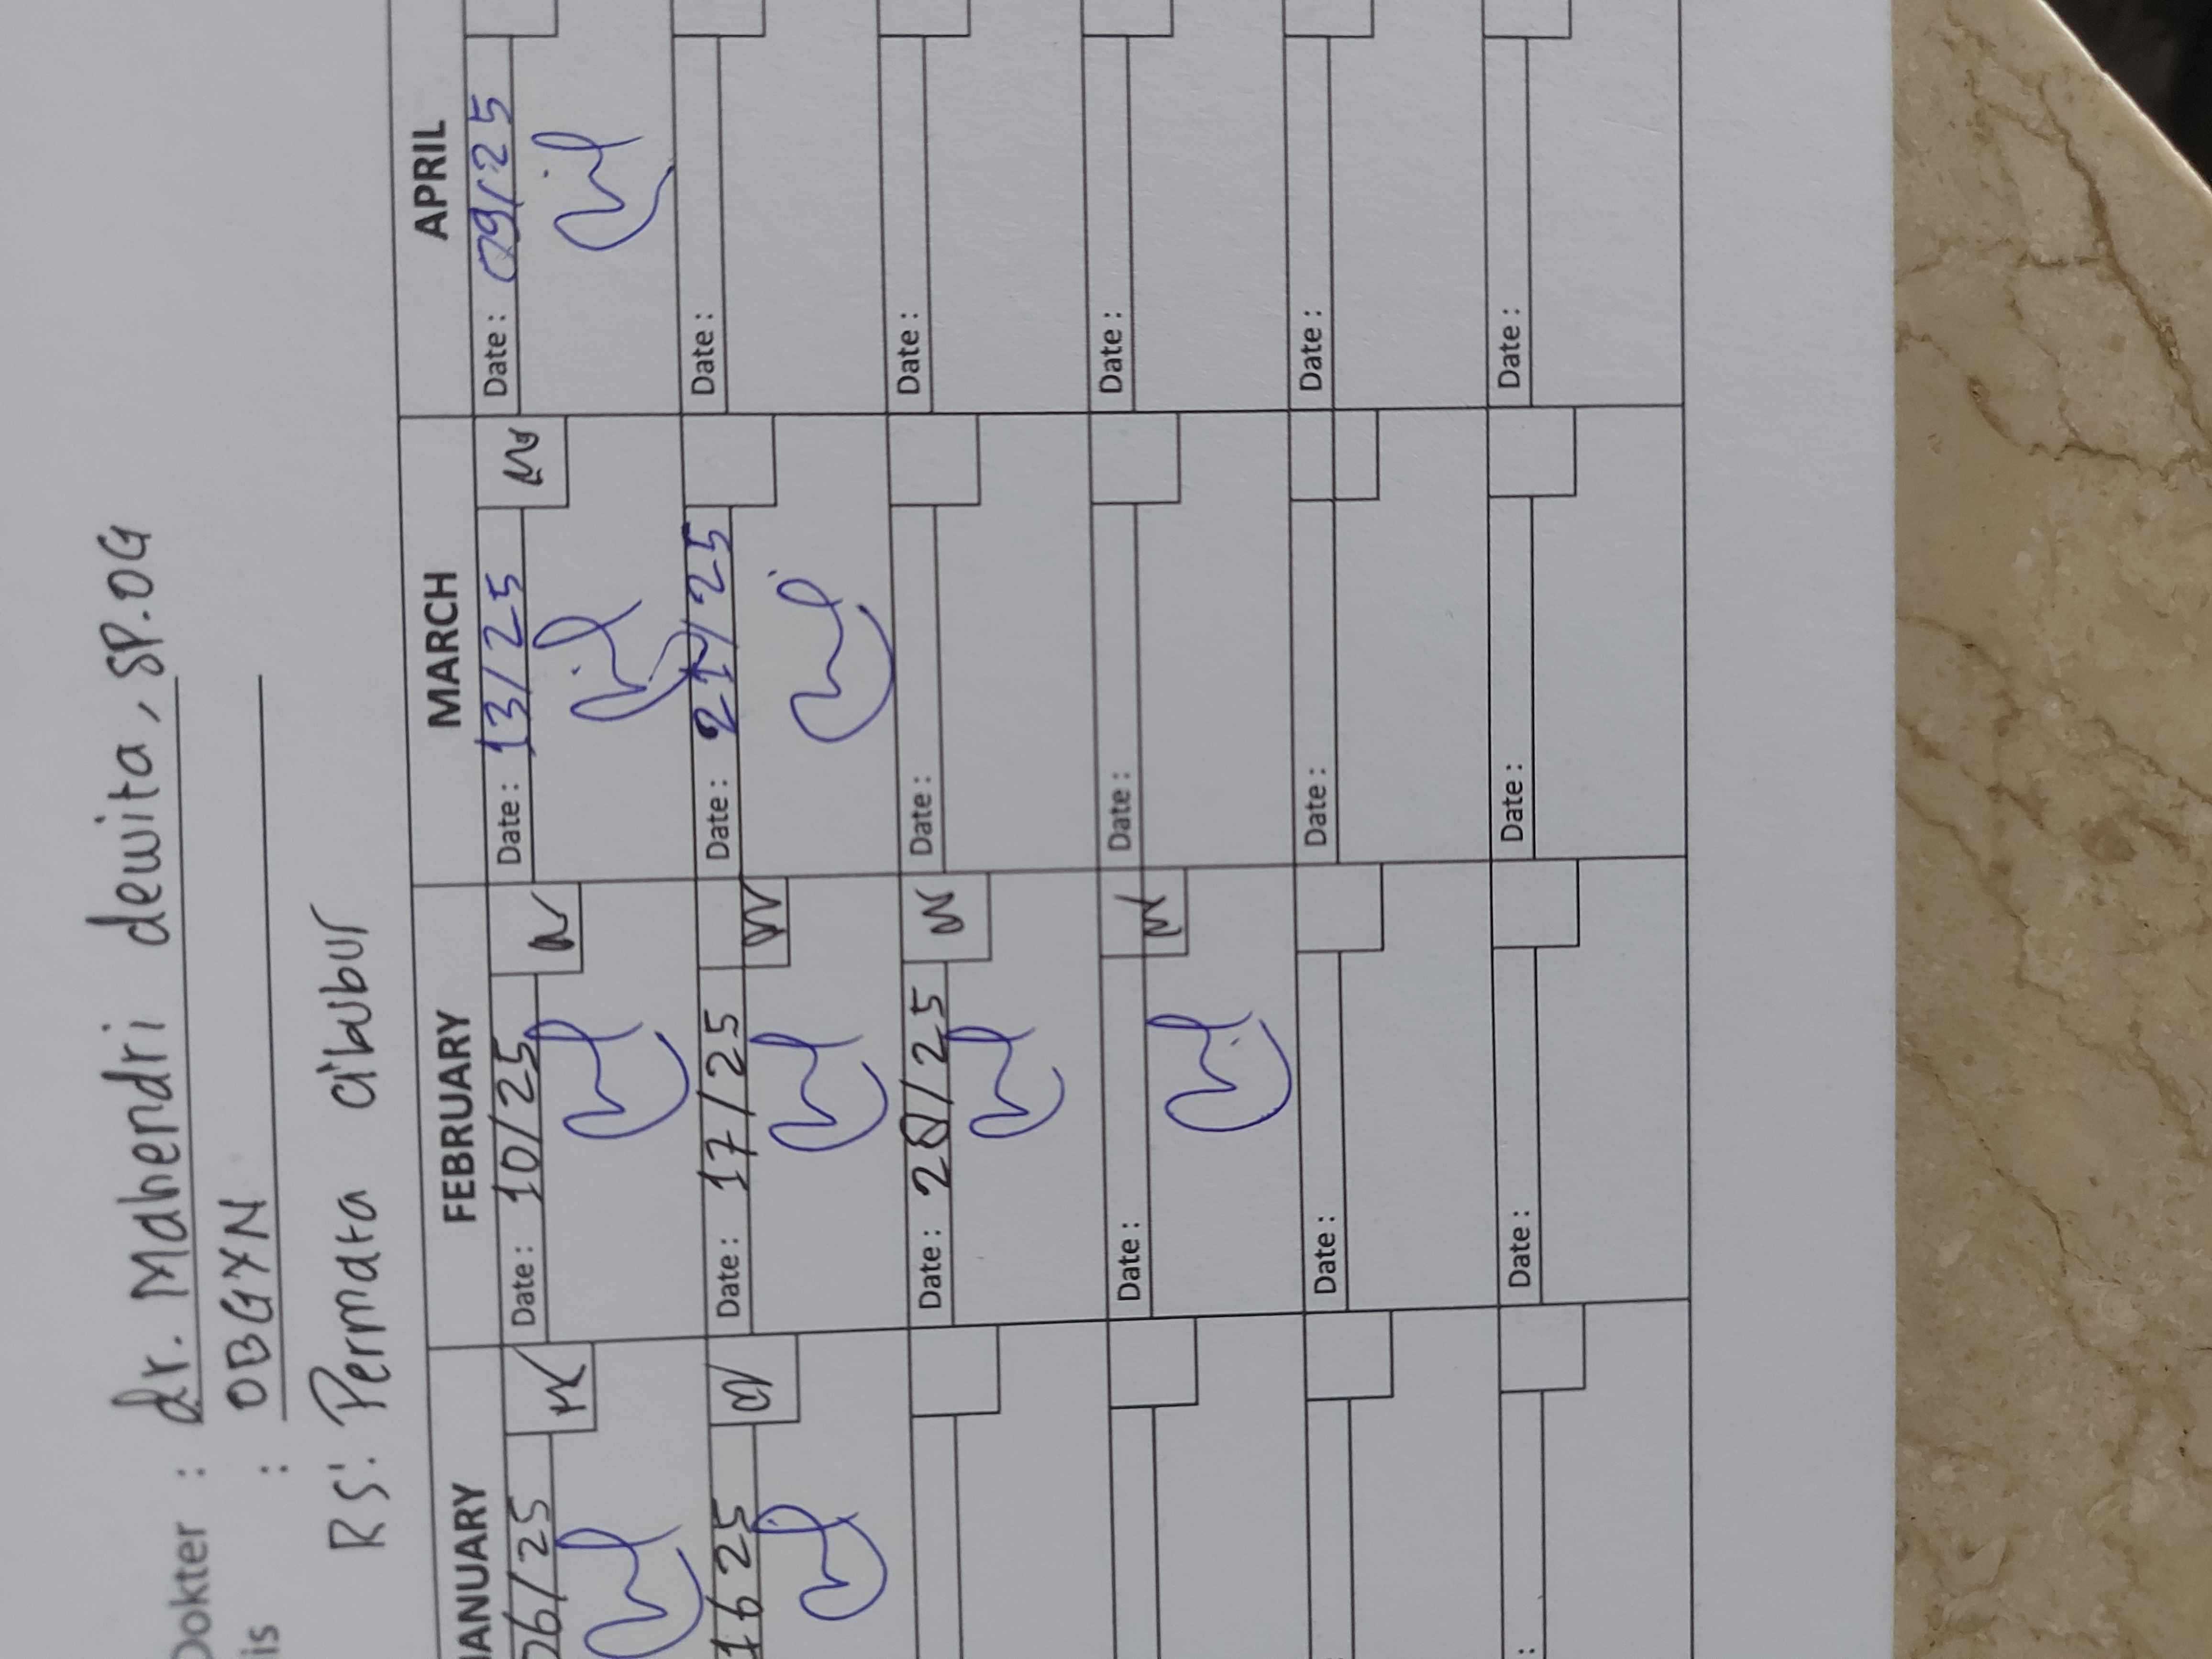 Dokter : dr. Mahendri dewita, SP.OG
is : OBGYN
RS: Permata cibubur
JANUARY FEBRUARY MARCH APRIL
06/25 Date : 10/25 Date : 13/25 Date : 09/25
16 25 Date : 17/25 Date : 21/25 Date :
Date : 20/25 Date : Date :
Date : Date : Date :
Date : Date : Date :
: Date : Date : Date :